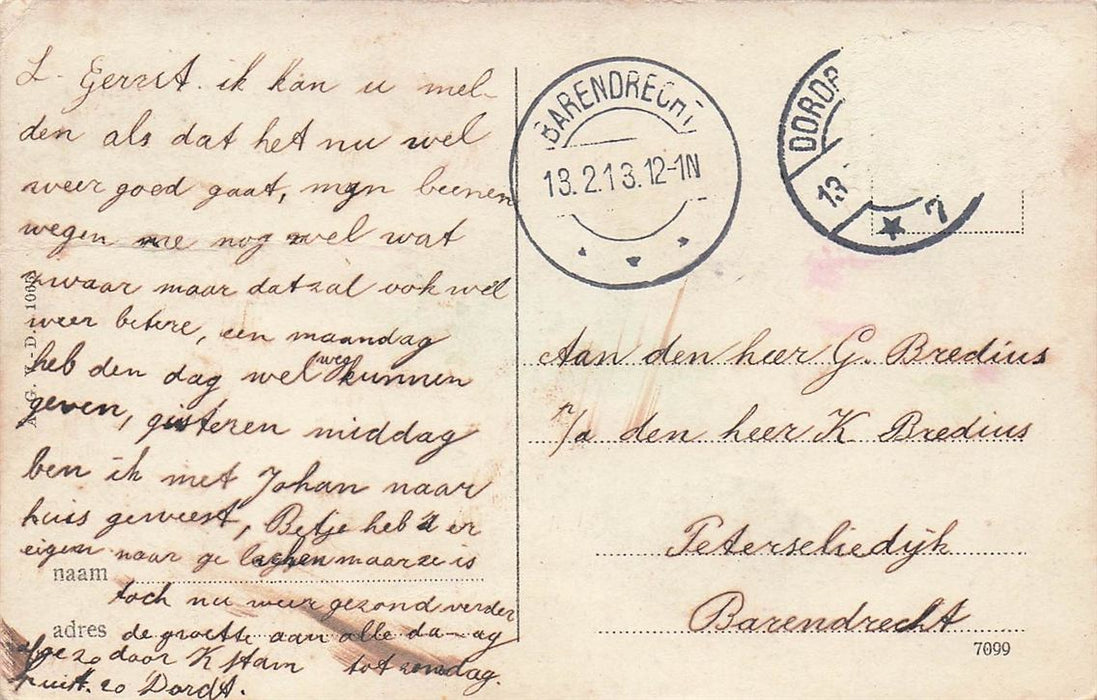 L. Gerrit. ik kan u mel-
den als dat het nu wel
weer goed gaat, mijn beenen
wegen me nog wel wat
zwaar maar dat zal ook wel
weer betere, een maandag
heb den dag wel weg kunnen
geven, gisteren middag
ben ik met Johan naar
huis geweest, Betje heb 't er
eigen naar ge lachen maar ze is
toch nu weer gezond verder
de groette aan alle da-ag
door K Stam tot zondag.
Dordt.
naam
adres
BARENDRECHT
13.2.13.12-1N
DORDR
13
7
Aan den heer G. Bredius
p/a den heer K Bredius
Peterseliedijk
Barendrecht
7099